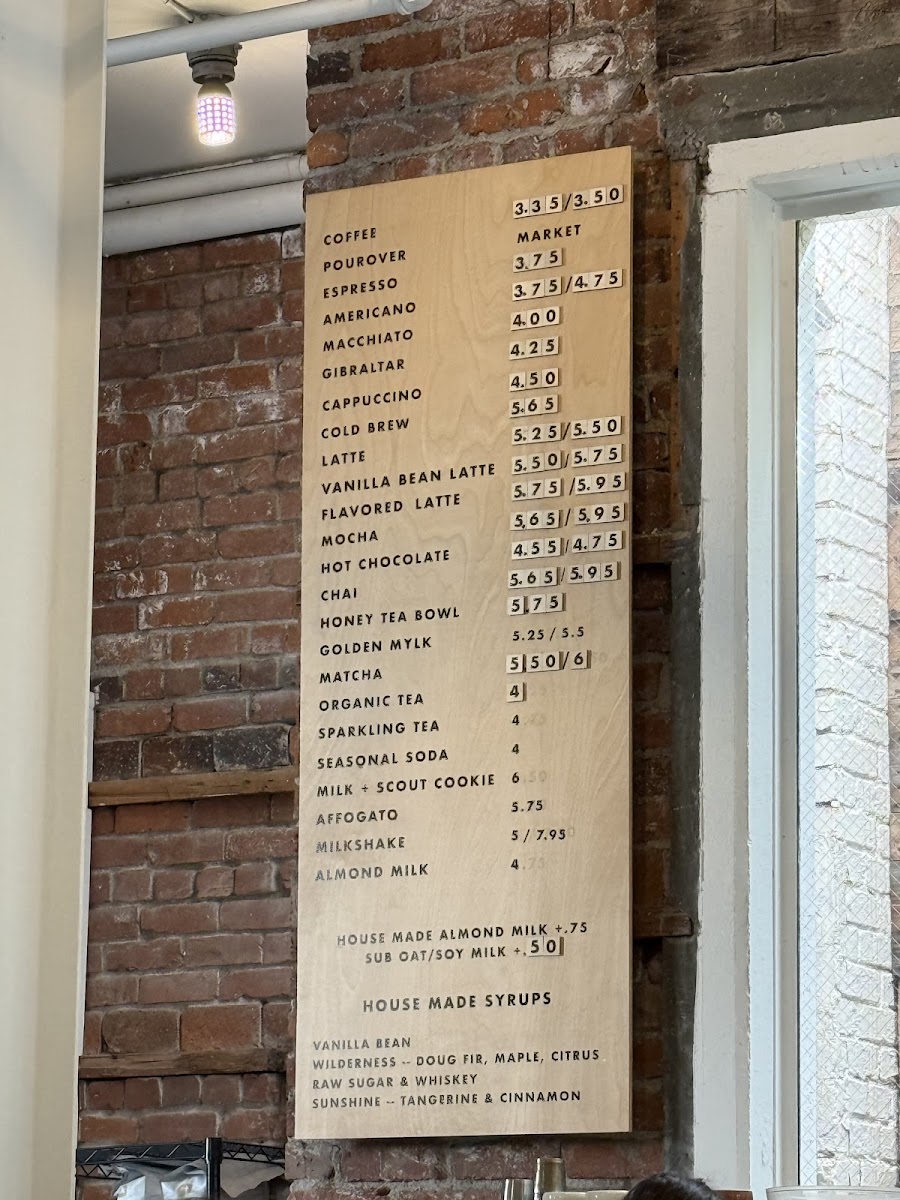 COFFEE 3.35/3.50
POUROVER MARKET
ESPRESSO 3.75
AMERICANO 3.75/4.75
MACCHIATO 4.00
GIBRALTAR 4.25
CAPPUCCINO 4.50
COLD BREW 5.65
LATTE 5.25/5.50
VANILLA BEAN LATTE 5.50/5.75
FLAVORED LATTE 5.75/5.95
MOCHA 5.65/5.95
HOT CHOCOLATE 4.55/4.75
CHAI 5.65/5.95
HONEY TEA BOWL 5.75
GOLDEN MYLK 5.25 / 5.5
MATCHA 5.50/6
ORGANIC TEA 4
SPARKLING TEA 4
SEASONAL SODA 4
MILK + SCOUT COOKIE 6
AFFOGATO 5.75
MILKSHAKE 5 / 7.95
ALMOND MILK 4
HOUSE MADE ALMOND MILK +.75
SUB OAT/SOY MILK +.50
HOUSE MADE SYRUPS
VANILLA BEAN
WILDERNESS -- DOUG FIR, MAPLE, CITRUS
RAW SUGAR & WHISKEY
SUNSHINE -- TANGERINE & CINNAMON